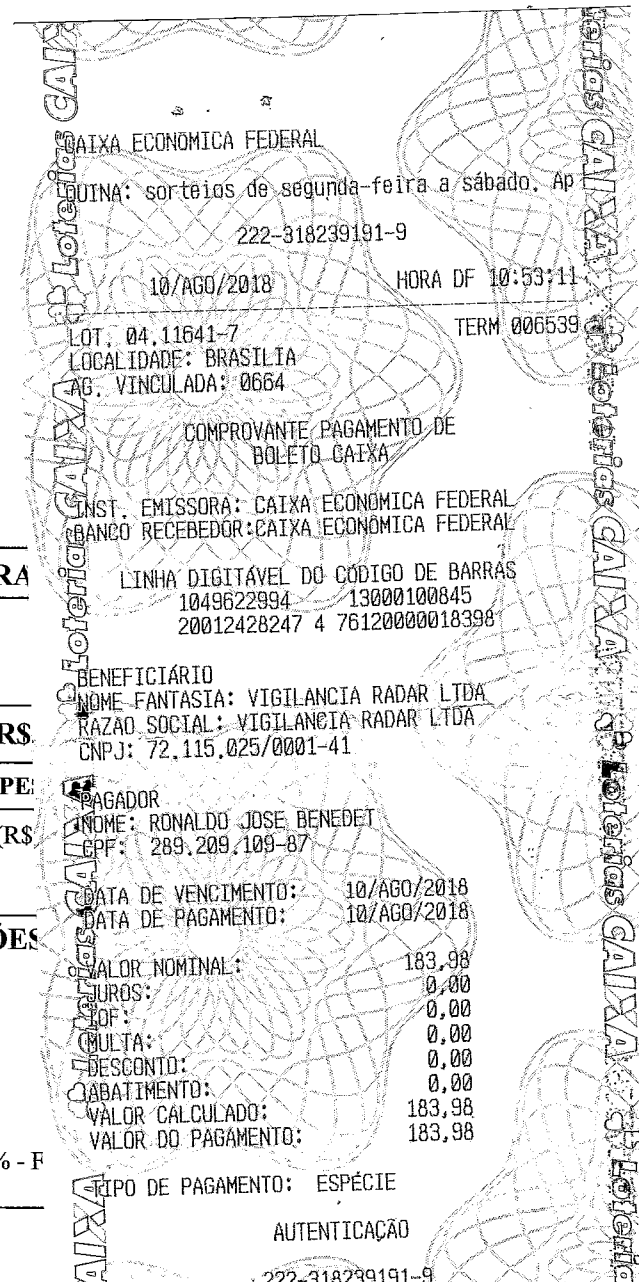 CAIXA ECONOMICA FEDERAL
QUINA: sorteios de segunda-feira a sábado. Ap
222-318239191-9
10/AGO/2018 HORA DF 10:53:11
LOT. 04.11641-7 TERM 006539
LOCALIDADE: BRASILIA
AG. VINCULADA: 0664
COMPROVANTE PAGAMENTO DE
BOLETO CAIXA
INST. EMISSORA: CAIXA ECONOMICA FEDERAL
BANCO RECEBEDOR:CAIXA ECONOMICA FEDERAL
RA
LINHA DIGITÁVEL DO CÓDIGO DE BARRAS
1049622994 13000100845
20012428247 4 76120000018398
BENEFICIÁRIO
NOME FANTASIA: VIGILANCIA RADAR LTDA
R$
RAZAO SOCIAL: VIGILANCIA RADAR LTDA
CNPJ: 72.115.025/0001-41
PES
PAGADOR
NOME: RONALDO JOSE BENEDET
(R$
CPF: 289.209.109-87
DATA DE VENCIMENTO: 10/AGO/2018
DATA DE PAGAMENTO: 10/AGO/2018
ÕES
VALOR NOMINAL: 183,98
JUROS: 0,00
IOF: 0,00
MULTA: 0,00
DESCONTO: 0,00
ABATIMENTO: 0,00
VALOR CALCULADO: 183,98
VALOR DO PAGAMENTO: 183,98
% - F
TIPO DE PAGAMENTO: ESPÉCIE
AUTENTICAÇÃO
222-318239191-9
Loterias CAIXA
Loterias CAIXA
Loterias CAIXA
Loterias CAIXA